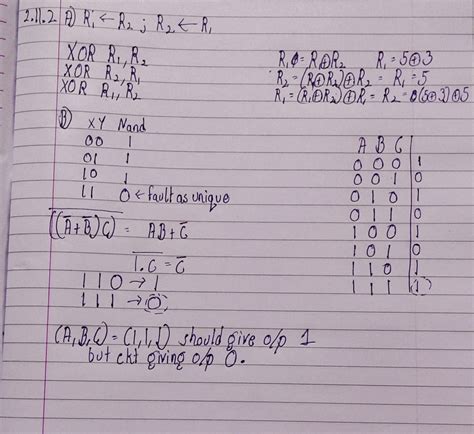 2.11.2 A) R₁ ← R₂ ; R₂ ← R₁
XOR R₁, R₂
XOR R₂, R₁
XOR R₁, R₂
R₁ = R₁⊕R₂ R₁ = 5⊕3
R₂ = (R₁⊕R₂)⊕R₂ = R₁ = 5
R₁ = (R₁⊕R₂)⊕R₁ = R₂ = (5⊕3)⊕5
B) XY Nand
00 1
01 1
10 1
11 0 ← fault as unique
[(A̅+B̅)C] = AB+C̅
1.C = C̅
110 → 1
111 → 0
A B C
0 0 0 1
0 0 1 0
0 1 0 1
0 1 1 0
1 0 0 1
1 0 1 0
1 1 0 1
1 1 1 1
(A,B,C) = (1,1,1) should give o/p 1
but ckt giving o/p 0.